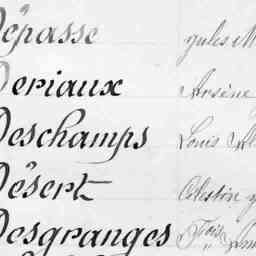 Dépasse Jules M
Deriaux Arsène
Deschamps Louis Al
Désert Célestin J
Desgranges Fçois Am